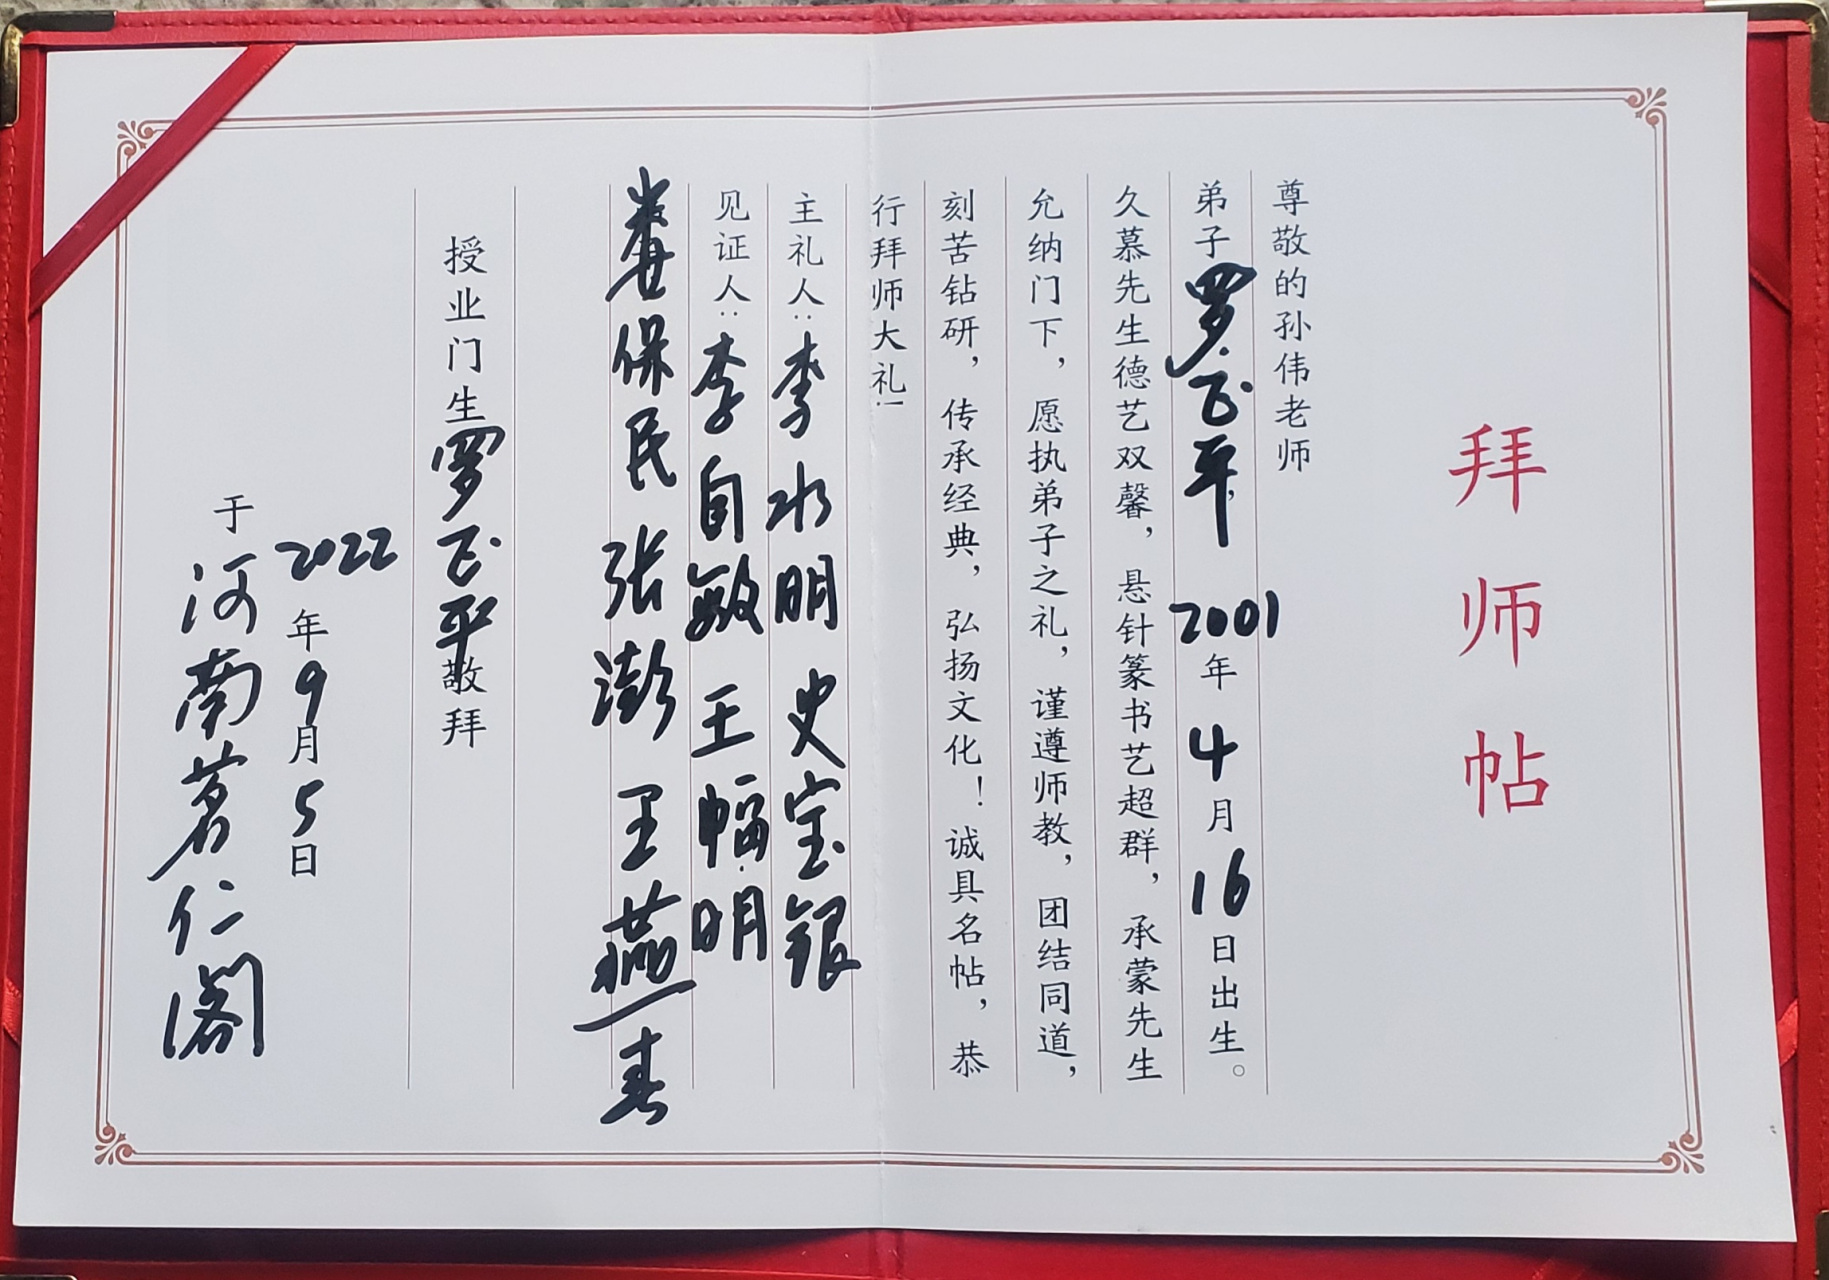 拜师帖
尊敬的孙伟老师
弟子罗飞平，2001年4月16日出生。
久慕先生德艺双馨，悬针篆书艺超群，承蒙先生
允纳门下，愿执弟子之礼，谨遵师教，团结同道，
刻苦钻研，传承经典，弘扬文化！诚具名帖，恭
行拜师大礼！
主礼人：李水明 史宝银
见证人：李自敏 王幅明
娄保民 张澎 王燕春
授业门生罗飞平敬拜
2022年9月5日
于河南茗仁阁